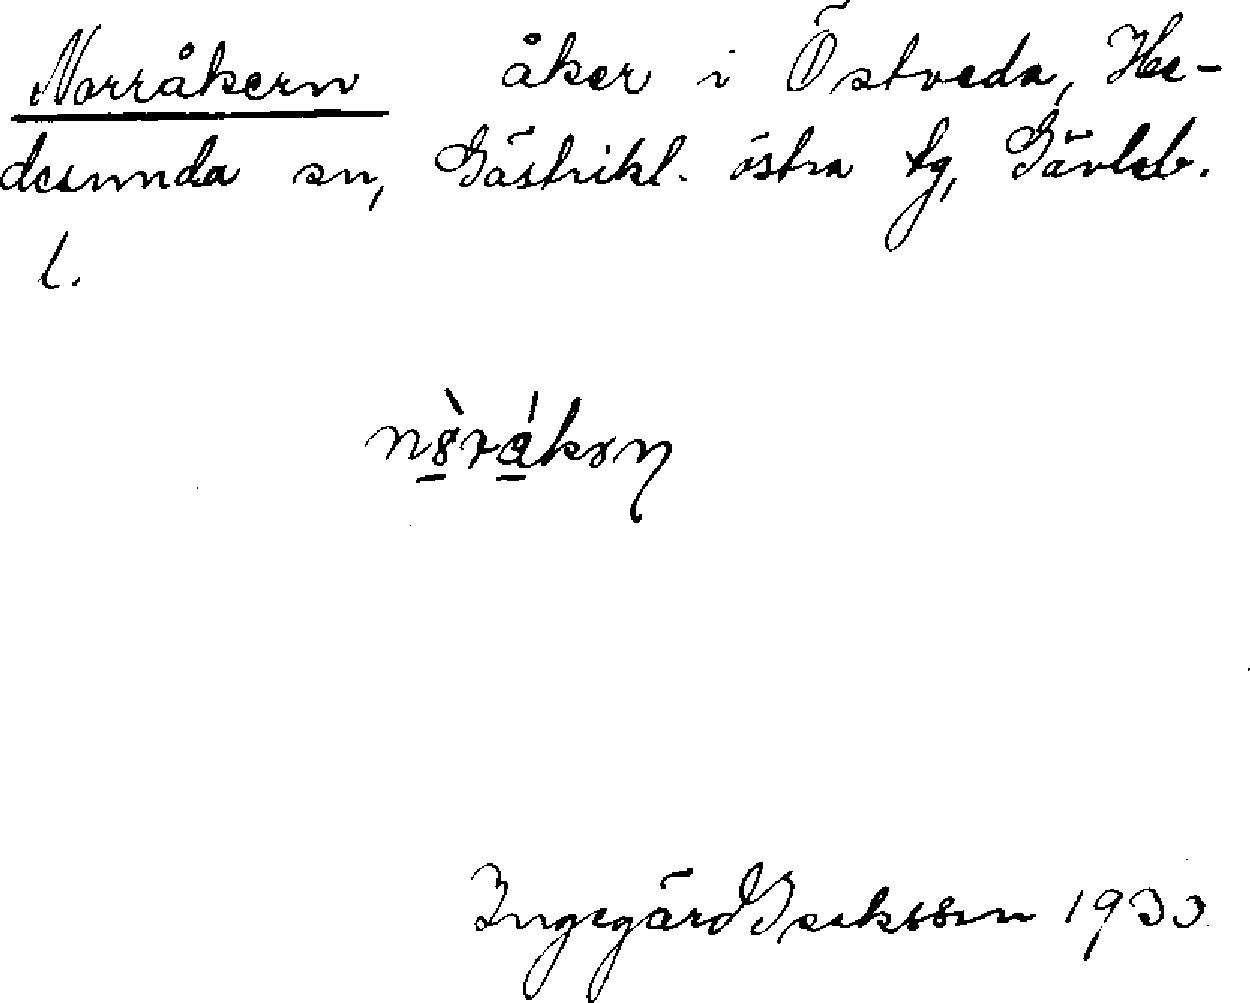 Norråkern åker i Östveda, He-
desunda sn, Gästrikl. östra tg, Gävleb.
l.
Ingegärd Isaksson 1930